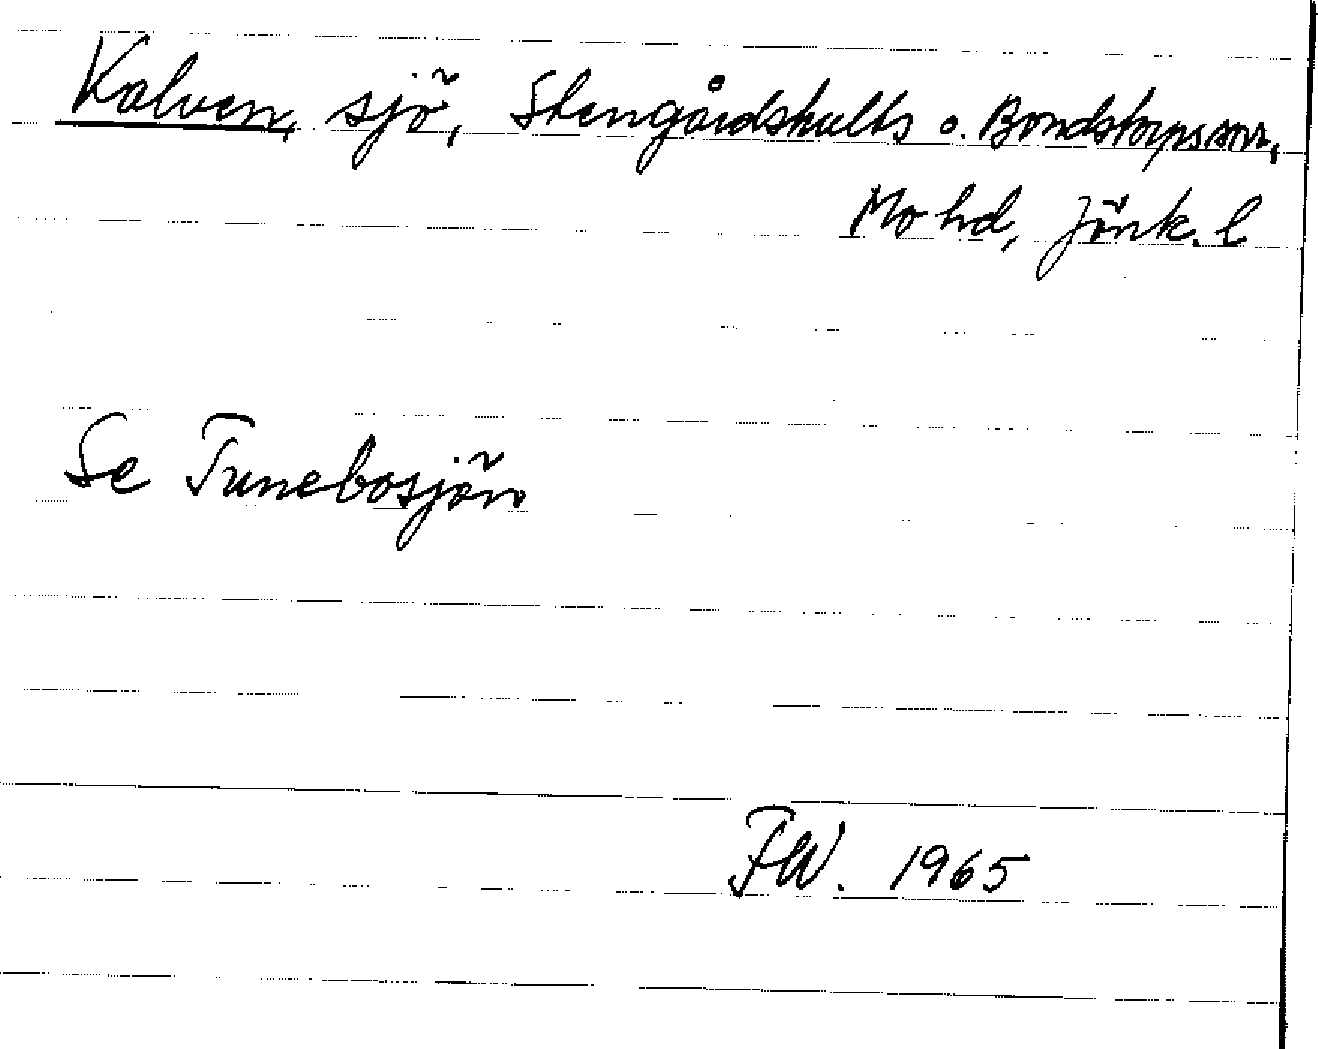 Kalven, sjö, Stengårdshults o. Bondstorps snr,
Mo hd, Jönk. l
Se Tunebosjön
FW. 1965